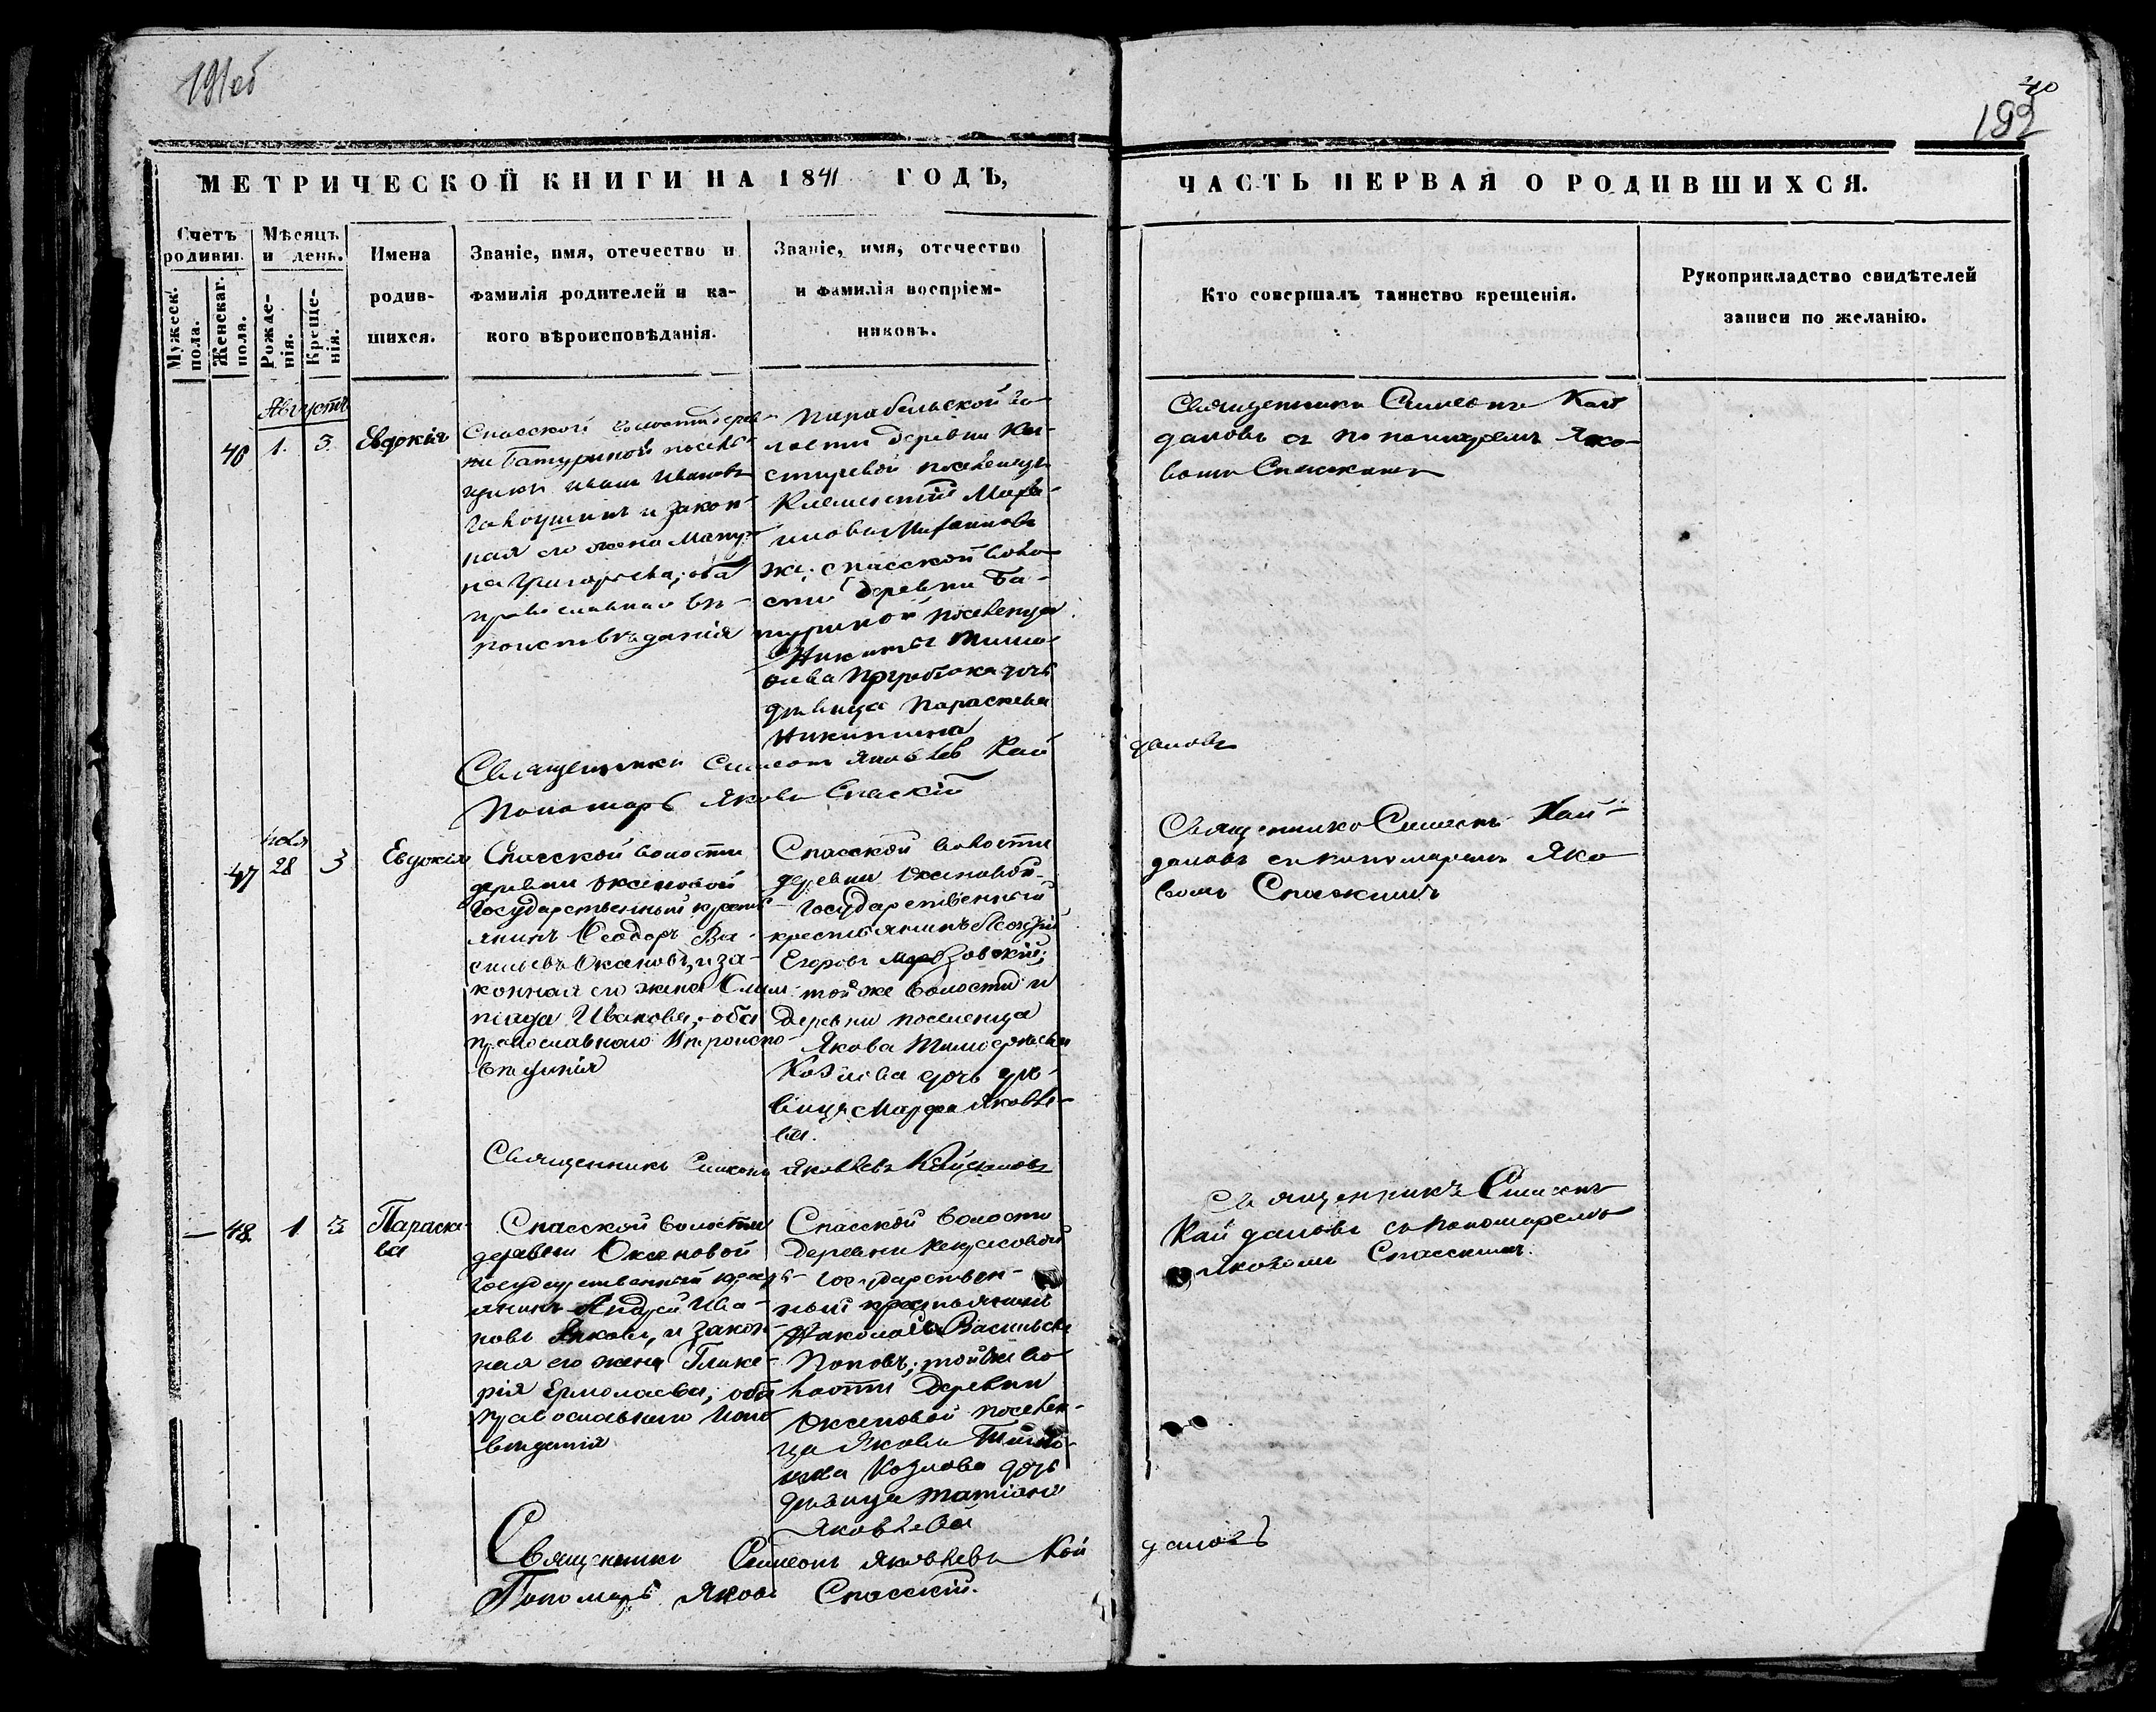 191об
40
192
МЕТРИЧЕСКОЙ КНИГИ НА 1841 ГОДЪ,
ЧАСТЬ ПЕРВАЯ О РОДИВШИХСЯ.
Счетъ родивш.
Мужеск. пола.
Женскаг. пола.
Мѣсяцъ и день.
Рожденія.
Крещенія.
Имена
родив-
шихся.
Званіе, имя, отечество и
фамилія родителей и ка-
кого вѣроисповѣданія.
Званіе, имя, отечество
и фамилія воспріем-
никовъ.
Кто совершалъ таинство крещенія.
Рукоприкладство свидѣтелей
записи по желанію.
Августъ
46
1.
3.
Евдокія
Спасской волости дерев-
ни Батуриной поселе-
Иванъ Ивановъ
и закон-
ная его жена Матре-
на Григорьева; оба
православнаго вѣ-
роисповѣданія
Парабельской во-
лости деревни Ка-
стыревой поселенецъ
Климентій
Спасской воло-
сти деревни Ба-
туриной поселенца
Никиты
дочь
дѣвица Параскева
Никитина
Священникъ Симеонъ Кай
дановъ съ пономаремъ Яко-
вомъ Спасскимъ
Священникъ Симеонъ Яковлев Кай
дановъ
Пономарь Яковъ Спаскій
47
Іюля
28
3
Евдокія
Спасской волости
деревни Оксеновой
Государственный кресть-
янинъ Ѳеодоръ Ва-
сильевъ Оксеновъ, и за-
конная его жена Олим-
піада Иванова; оба
православнаго вѣроиспо-
вѣданія
Спасской волости
деревни Оксеновой
Государственный
крестьянинъ
Егоровъ
той же волости и
деревни поселенца
Якова Тимоѳеева
Козлова дочь дѣ-
вица Марфа Яковле-
ва.
Священникъ Симеонъ Кай-
дановъ съ пономаремъ Яко
вомъ Спасскимъ
Священникъ Симеонъ Яковлевъ Кайдановъ
48.
1
3
Параске
ва
Спасской волости
деревни Оксеновой
Государственный кресть-
янинъ Андрей Ива-
новъ и закон-
ная его жена Глике-
рія Ермолаева; оба
православнаго испо
вѣданія
Спасской волости
деревни
Государствен-
ный крестьянинъ
Николай Васильевъ
Поповъ; той же во-
лости деревни
Оксеновой поселен-
ца Якова Тимоѳе-
ева Козлова дочь
дѣвица Татіана
Яковлева
Священникъ Симеонъ
Кайдановъ съ пономаремъ
Яковомъ Спасскимъ.
Священникъ Симеонъ Яковлевъ Кай
дановъ
Пономарь Яковъ Спасскій.